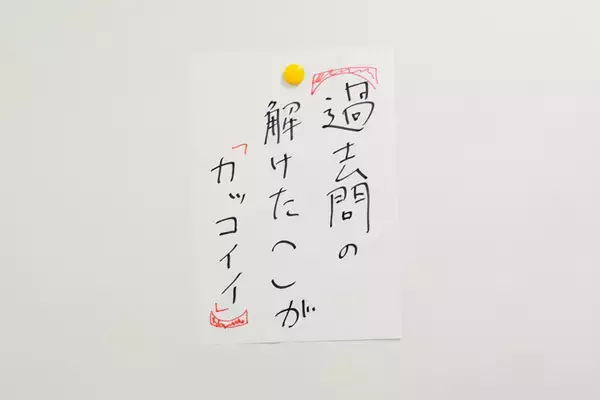 過去問の
解けた（ ）が
「カッコイイ」